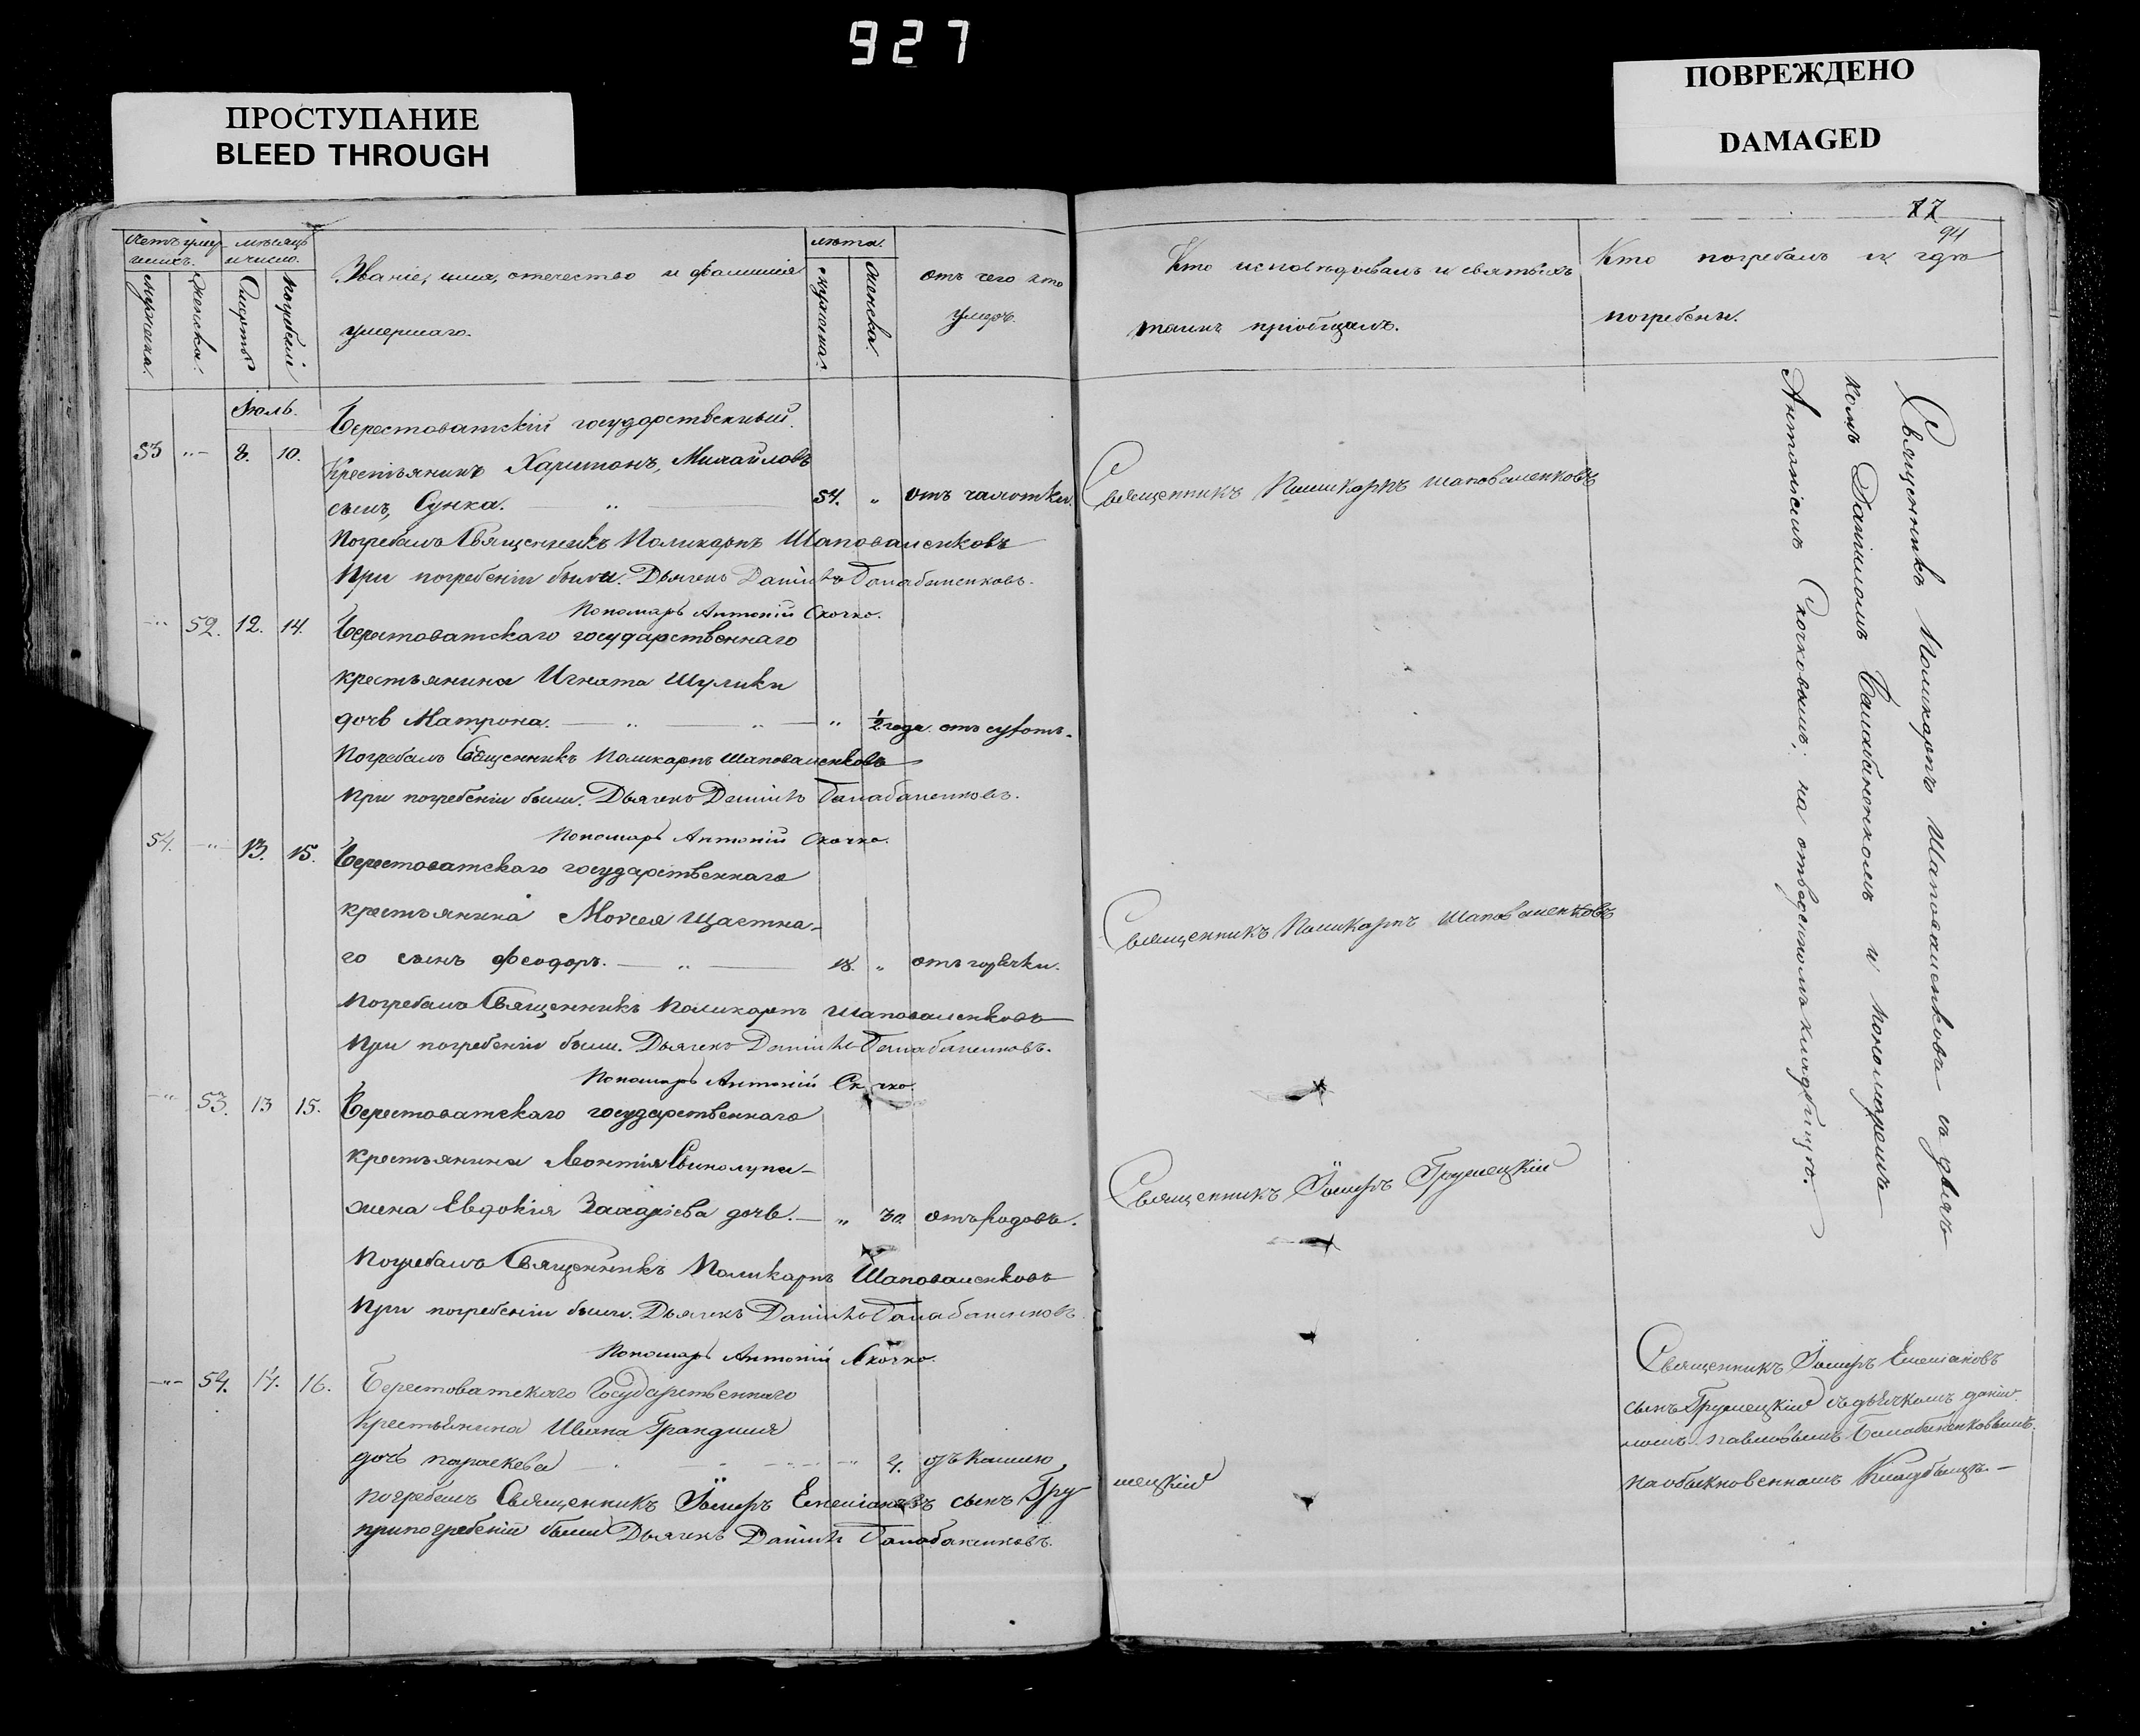 927
ПРОСТУПАНИЕ
BLEED THROUGH
ПОВРЕЖДЕНО
DAMAGED
17
94
Счетъ умершихъ.
мѣсяцъ и число.
Мужеска.
Женска.
Смерти
Погребенія
Званіе, имя, отечество и фамилія
умершаго.
лѣта.
мужеска.
Женска.
отъ чего кто
умеръ.
Кто исповѣдовалъ и святыхъ
таинъ пріобщалъ.
Кто погребалъ и гдѣ
погребены.
Іюль.
Берестоватскій государственный
53 "- 8. 10. Крестьянинъ Харитонъ, Михайловъ
сынъ, Сунка. 54. " отъ чахотки. Священникъ Поликарпъ Шаповаленковъ
Погребалъ Священникъ Поликарпъ Шаповаленковъ
При погребеніи были. Дьячекъ Даніилъ Балабаненковъ.
Пономарь Антоній Скочко.
-"- 52. 12. 14. Берестоватскаго государственнаго
крестьянина Игната Шулики
дочь Матрона. " 1/2 года.
Погребалъ Священникъ Поликарпъ Шаповаленковъ
При погребеніи были. Дьячекъ Даніилъ Балабаненковъ.
Пономарь Антоній Скочко.
54. -"- 13. 15. Берестоватскаго государственнаго
крестьянина Моисея Щастна-
го сынъ Феодоръ. 18. " отъ горячки. Священникъ Поликарпъ Шаповаленковъ
Погребалъ Священникъ Поликарпъ Шаповаленковъ
При погребеніи были. Дьячекъ Даніилъ Балабаненковъ.
Пономарь Антоній Скочко.
-"- 53. 13 15. Берестоватскаго государственнаго
крестьянина Леонтія
жена Евдокія Захаріева дочь. " 30. отъ родовъ. Священникъ Іосифъ Грушецкій
Погребалъ Священникъ Поликарпъ Шаповаленковъ
При погребеніи были. Дьячекъ Даніилъ Балабаненковъ
Пономарь Антоній Скочко.
-"- 54. 14. 16. Берестоватскаго Государственнаго
Крестьянина Ивана
дочь параскева 4. отъ кашлю
погребалъ Священникъ Іосифъ Емеліановъ сынъ Грушецкій
при погребеніи были Дьячекъ Даніилъ Балабаненковъ.
Священникъ Поликарпъ Шаповаленковъ съ дьяч-
комъ Даніиломъ Балабаненкомъ и пономаремъ
Антоніемъ Скочковымъ; на отведенномъ кладбищѣ.
Священникъ Іосифъ Емеліановъ
сынъ Грушецкій съ дьячкомъ даніи-
ломъ павловымъ Балабаненковымъ.
на обыкновенномъ Кладбищѣ.